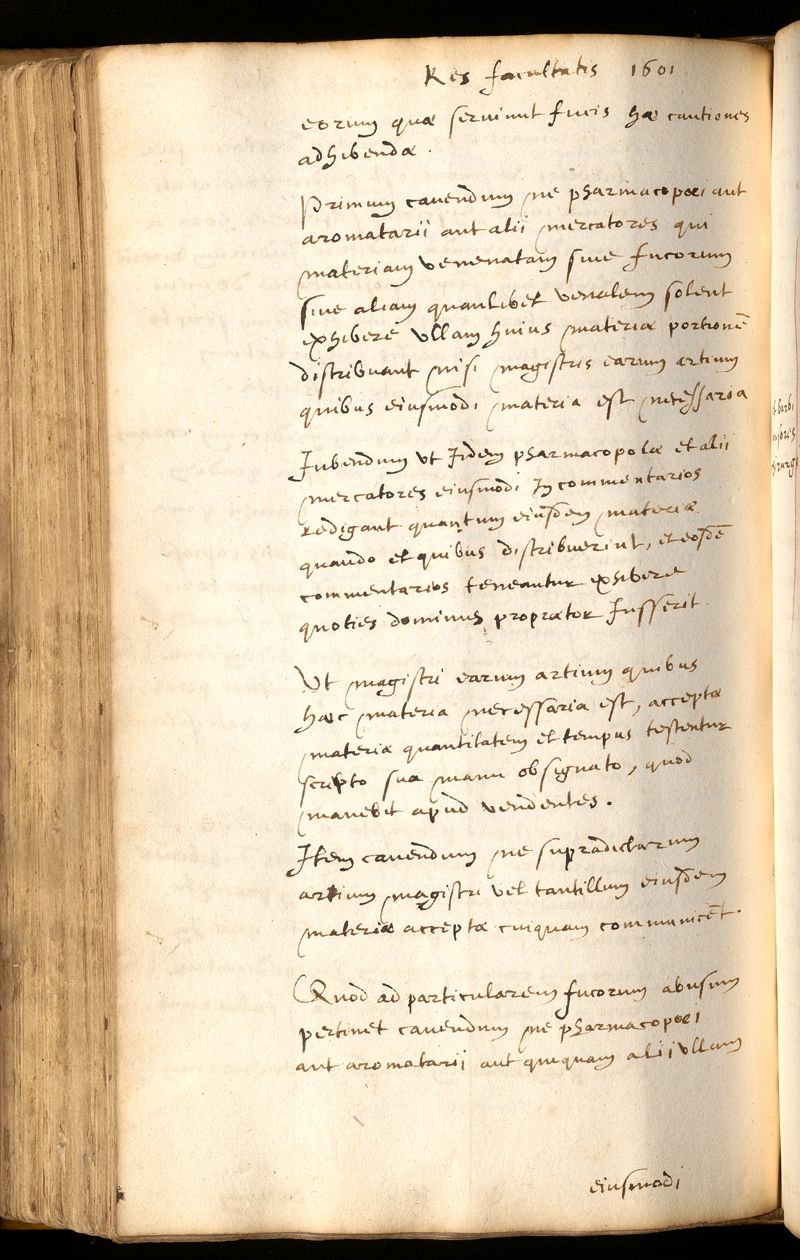 Res facultatis 1601
eorum quæ seruiunt fucis hæ cautiones
adhibendæ.
Primum cauendum ne pharmacopoei aut
aromatarii aut alii mercatores qui
materiam venenatam siue fucorum
siue aliam quamlibet venalem solent
exhibere ullam huius materiæ portionē
distribuant nisi magistris earum artium
quibus eiusmodi materia est necessaria
Iubendum vt Iidem pharmacopolæ et alii
mercatores eiusmodi In commentarios
redigant quantum eiusdem materiæ
quando et quibus distribuerint, et eosdē
commentarios teneantur exhibere
quoties dominus proprætor Iusserit
Vt magistri earum artium quibus
hæc materia necessaria est, acceptæ
materiæ quantitatem et tempus testentur
scripto sua manu obsignato, quod
manebit apud vendentes.
Item cauendum ne supradictarum
artium magistri vel tantillum eiusdem
materiæ acceptæ cuiquam communicēt.
Quod ad particularem fucorum abusum
pertinet cauendum ne pharmacopoei
aut aromatarii aut quiquam alii vllam
eiusmodi